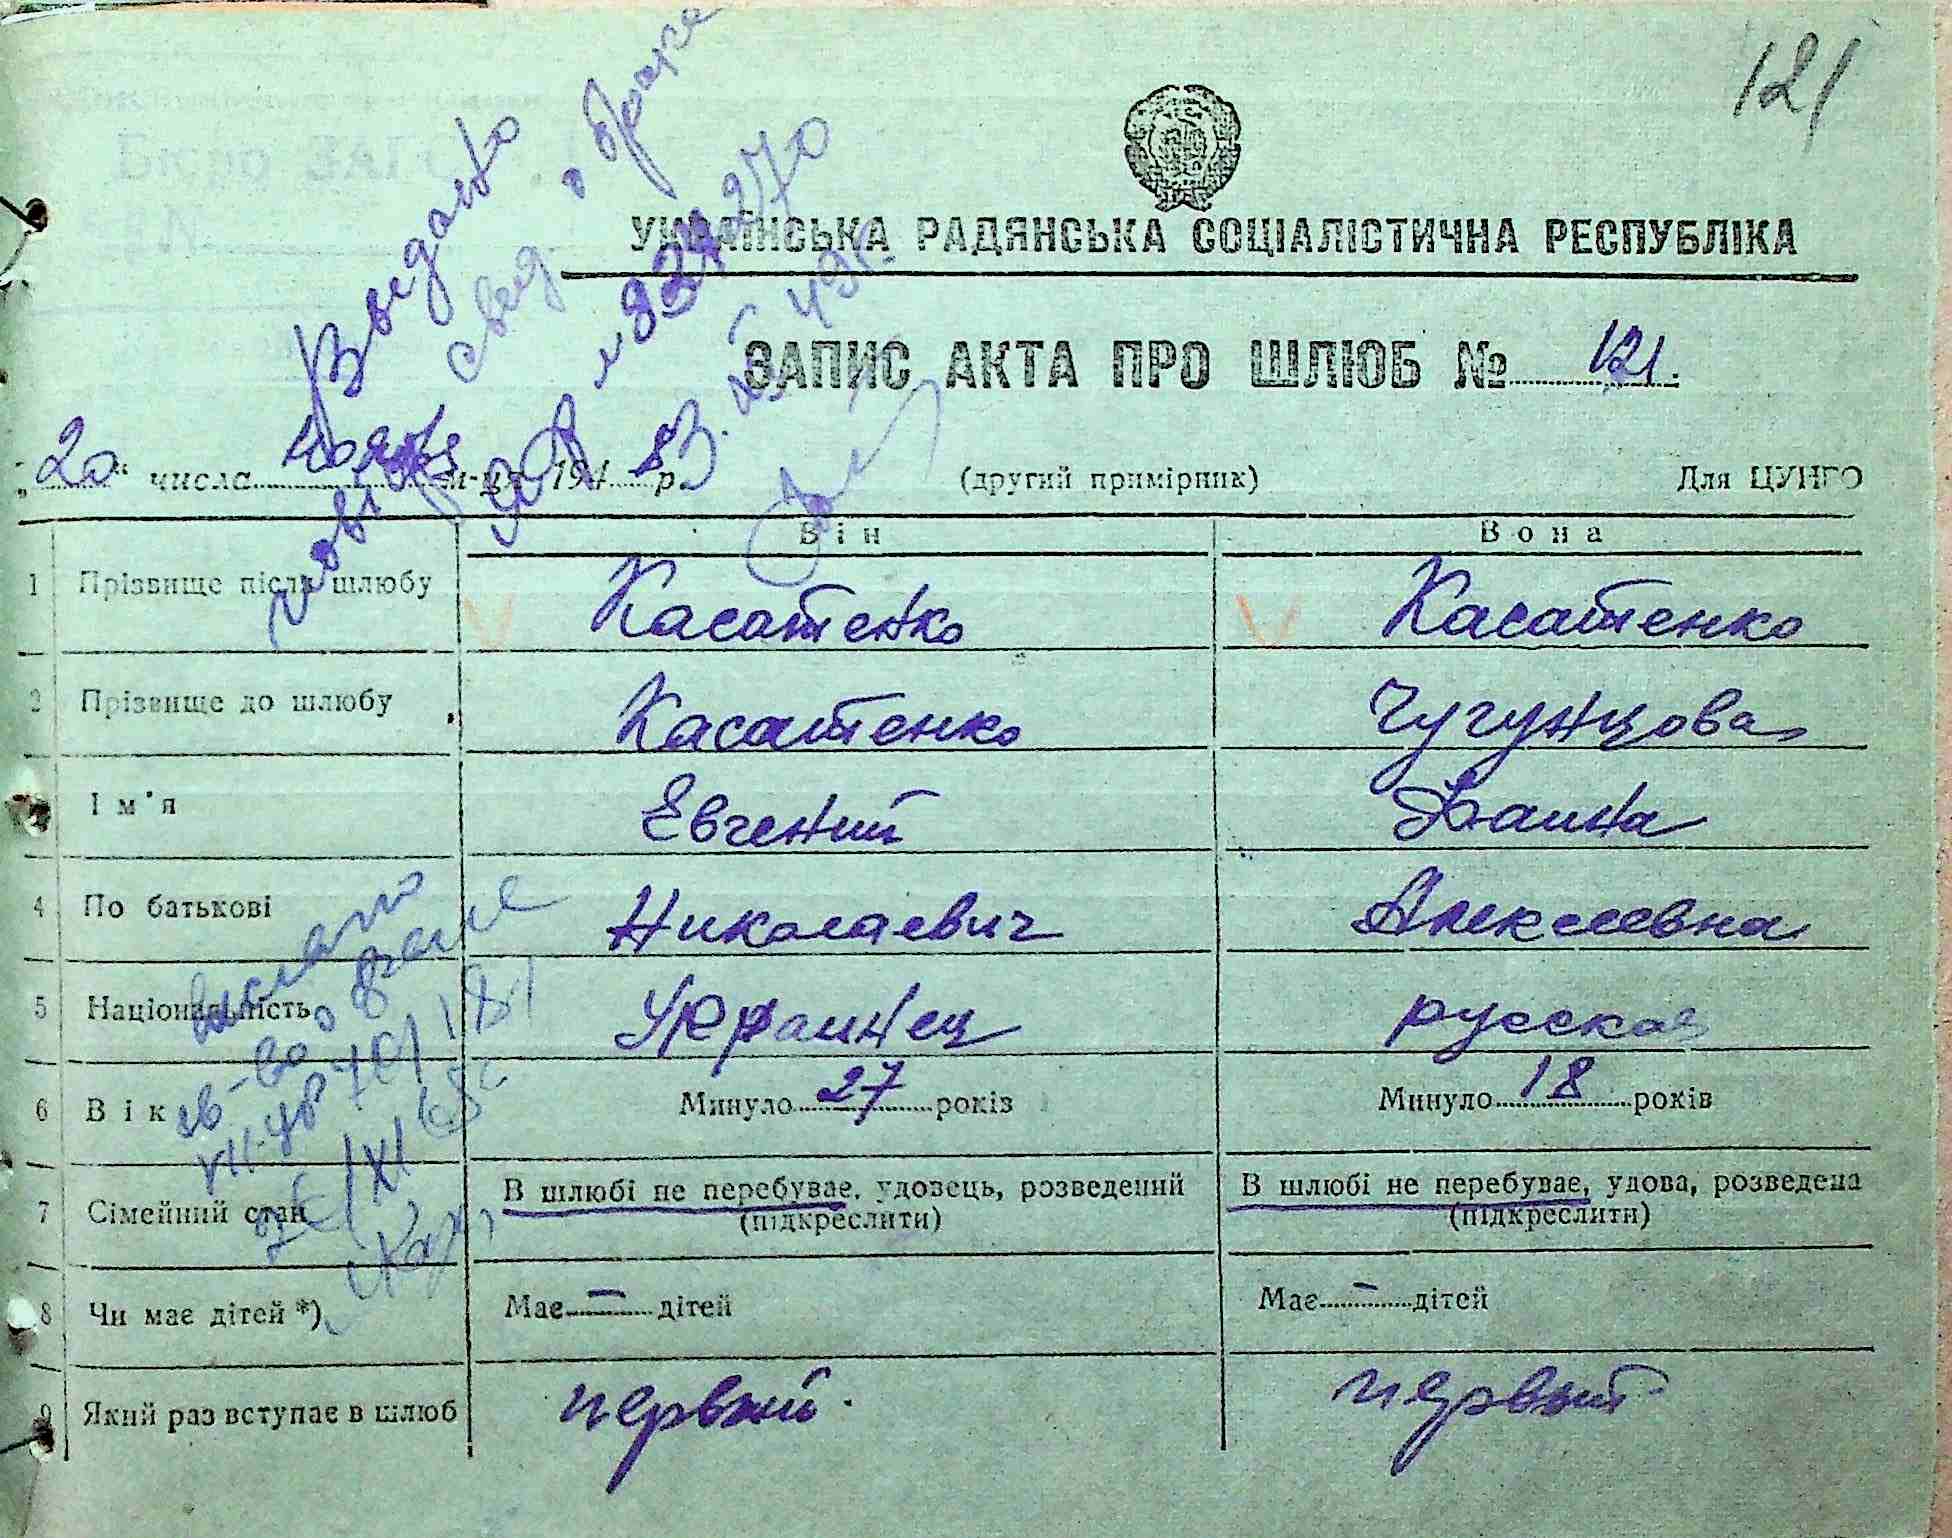 121
УКРАЇНСЬКА РАДЯНСЬКА СОЦІАЛІСТИЧНА РЕСПУБЛІКА
ЗАПИС АКТА ПРО ШЛЮБ № 121.
„20“ числа ноября м-ця 194 8 р. (другий примірник) Для ЦУНГО
Выдано
повторно
свед о браке
Він Вона
1 Прізвище після шлюбу Касатенко Касатенко
2 Прізвище до шлюбу Касатенко Чугунцова
Ім'я Евгений Жанна
4 По батькові Николаевич Алексеевна
5 Національність Украинец русская
6 Вік Минуло 27 років Минуло 18 років
7 Сімейний стан В шлюбі не перебуває, удовець, розведений (підкреслити) В шлюбі не перебуває, удова, розведена (підкреслити)
8 Чи має дітей *) Має — дітей Має — дітей
9 Який раз вступає в шлюб первый. первый
выслано
св-во о браке